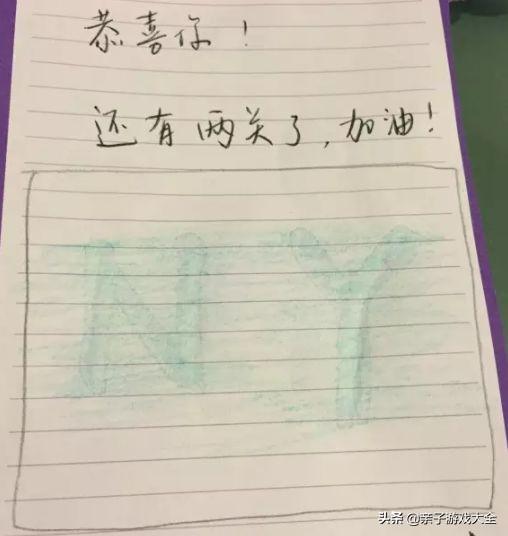 恭喜你！
还有两关了，加油！
NY
头条 @亲子游戏大全